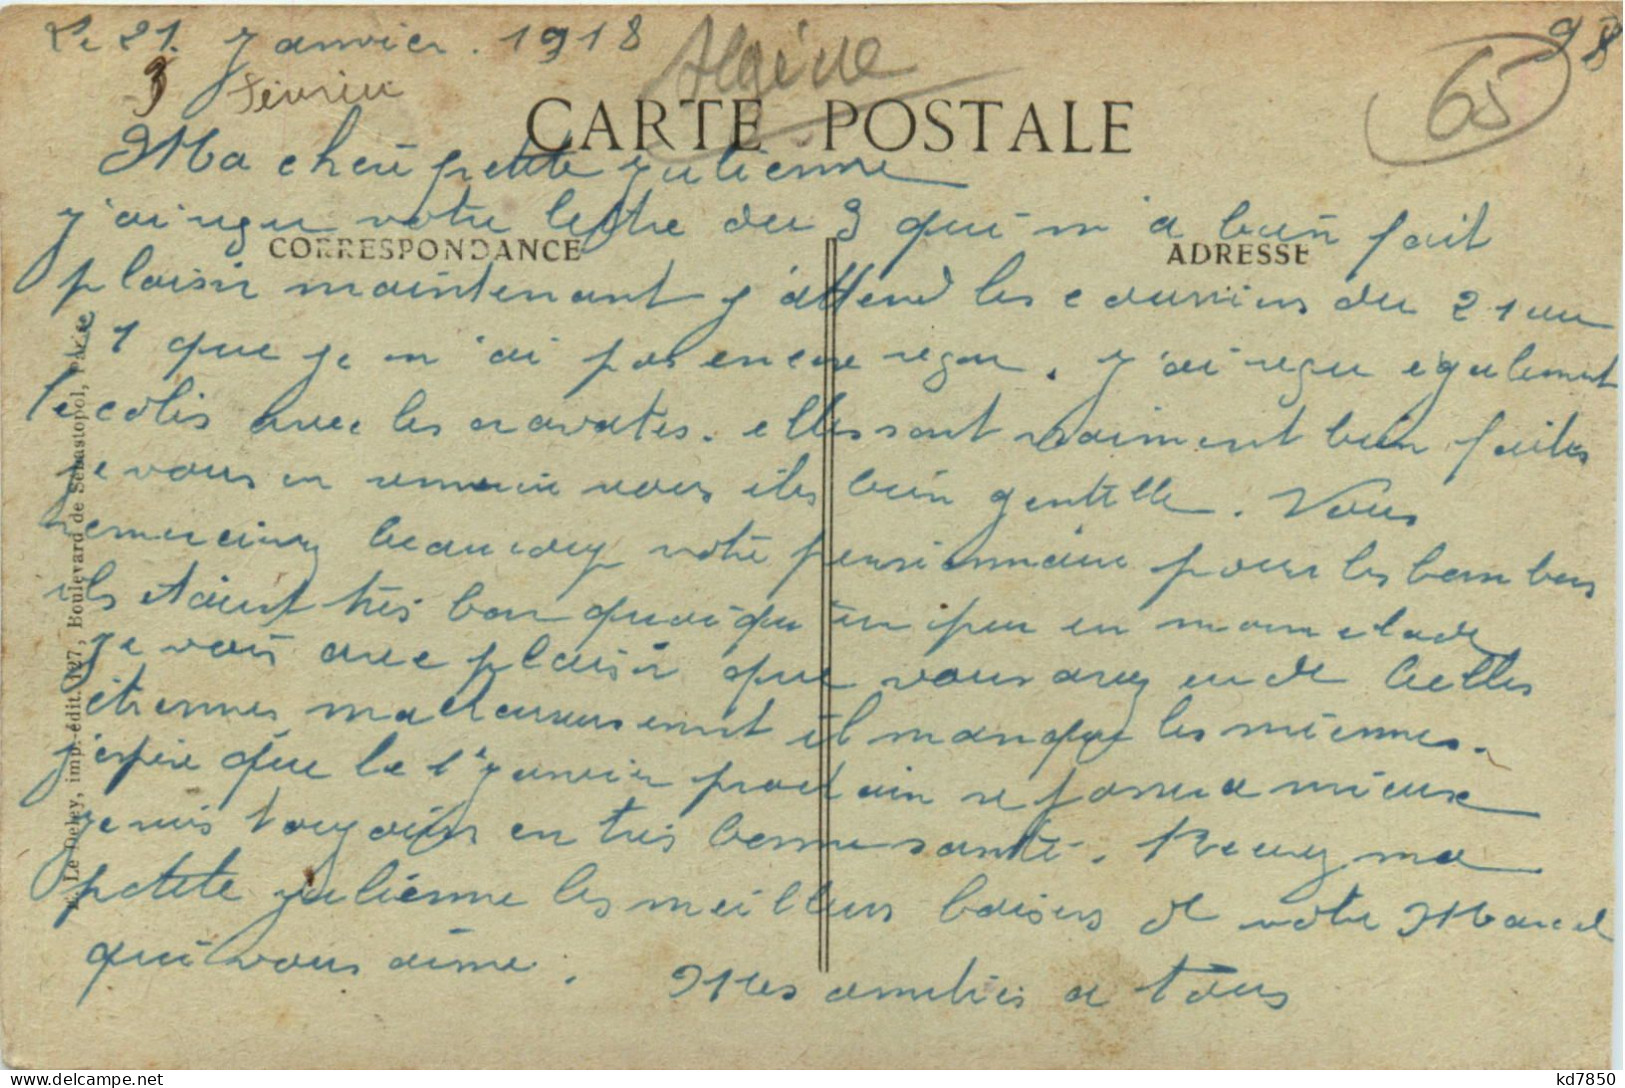 Le 21. Janvier. 1918
98
3 Février
Algérie
65
CARTE POSTALE
Ma cheri petite Julienne
j'ai reçu votre lettre du 3 qui m'a bien fait
CORRESPONDANCE
ADRESSE
plaisir maintenant j'attend les courriers du 21 au
1 que je n'ai pas encore reçu. j'ai reçu également
le colis avec les cravates. elles sont vraiment bien faites
je vous en remercie vous êtes bien gentille. Vous
remercierez beaucoup votre pensionnaire pour les bonbons
ils étaient très bon quoique un peu en marmelade
je vois avec plaisir que vous avez eu de belles
étrennes malheureusement il manque les miennes.
j'espère que le 1er janvier prochain se passera mieux
je suis toujours en très bonne santé. Recevez ma
petite Julienne les meilleurs baisers de votre Marcel
qui vous aime. Mes amitiés a tous
E. Le Deley, imp.-édit. 127, Boulevard de Sébastopol, Paris
kd7850